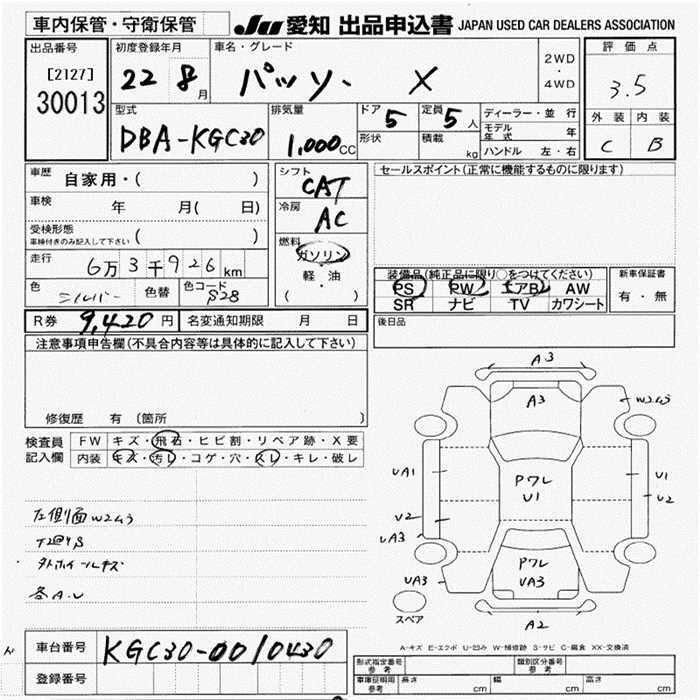 車内保管・守衛保管
JU 愛知 出品申込書 JAPAN USED CAR DEALERS ASSOCIATION
出品番号 初度登録年月 車名・グレード 評価点
[2127] 22 8月 パッソ X 2WD・4WD 3.5
30013
型式 排気量 ドア 5 定員 5人 ディーラー・並行 外装 内装
DBA-KGC30 1,000cc 形状 積載 kg モデル年式 年 C B
ハンドル 左・右
車歴 自家用・( ) シフト CAT セールスポイント(正常に機能するものに限ります)
車検 年 月( 日) 冷房 AC
受検形態 ( )
車検付きのみ記入して下さい
走行 6万3千926km 燃料 ガソリン
軽・油
( )
装備品(純正品に限り○をつけてください) 新車保証書
色 シルバー 色替 色コード S28 PS PW エアB AW 有・無
SR ナビ TV カワシート
R券 9,420円 名変通知期限 月 日 後日品
注意事項申告欄(不具合内容等は具体的に記入して下さい)
修復歴 有 (箇所 )
検査員記入欄 FW キズ・飛石・ヒビ割・リペア跡・X要
内装 キズ・汚レ・コゲ・穴・スレ・キレ・破レ
左側面W2ムラ
外ホイールキズ
各A.U
A3
A3
W2ムラ
UA1
PワレU1
U1
U2
U2
UA3
PワレUA3
UA3
スペア
A2
A-キズ E-エクボ U-凹み W-補修跡 S-サビ C-腐食 XX-交換済
車台番号 KGC30-0010430
登録番号
形式指定番号 参考 類別区分番号 参考
車庫証明用 参考 長さ cm 幅 cm 高さ cm